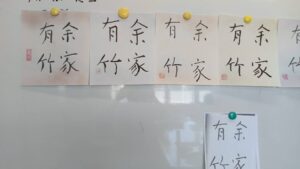 余家
有竹
余家
有竹
余家
有竹
余家
有竹
有竹
余家
有竹